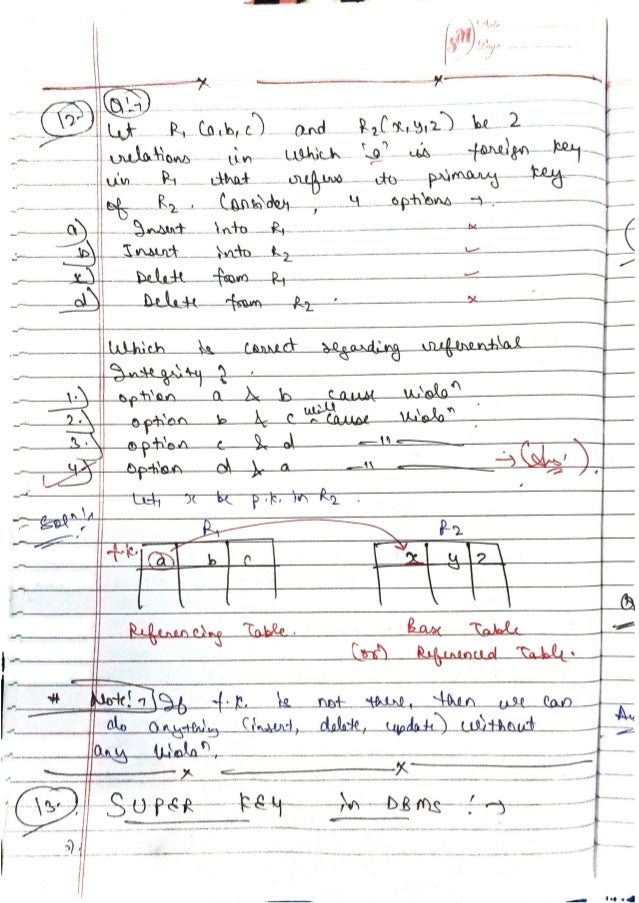 M
Page
12.
Q:→
Let R₁ (a,b,c) and R₂(x,y,z) be 2
relations in which 'a' is foreign key
in R₁ that refers to primary key
of R₂. Consider, 4 options →.
a) Insert into R₁ ×
b) Insert into R₂ ✓
c) Delete from R₁ ✓
d) Delete from R₂. ×
Which is correct regarding referential
Integrity?
1.) option a & b cause violoⁿ
2.) option b & c will cause violoⁿ
3.) option c & d —11—
4.) option d & a —11— → (Ans!).
Let, x be p.k. in R₂.
Solⁿ:
R₁ R2
f.k. a b c x y z
Referencing Table. Base Table
(or) Referenced Table.
# Note!→ If f.k. is not there, then we can
do anything (insert, delete, update) without
any violoⁿ.
13. SUPER KEY in DBMS :→